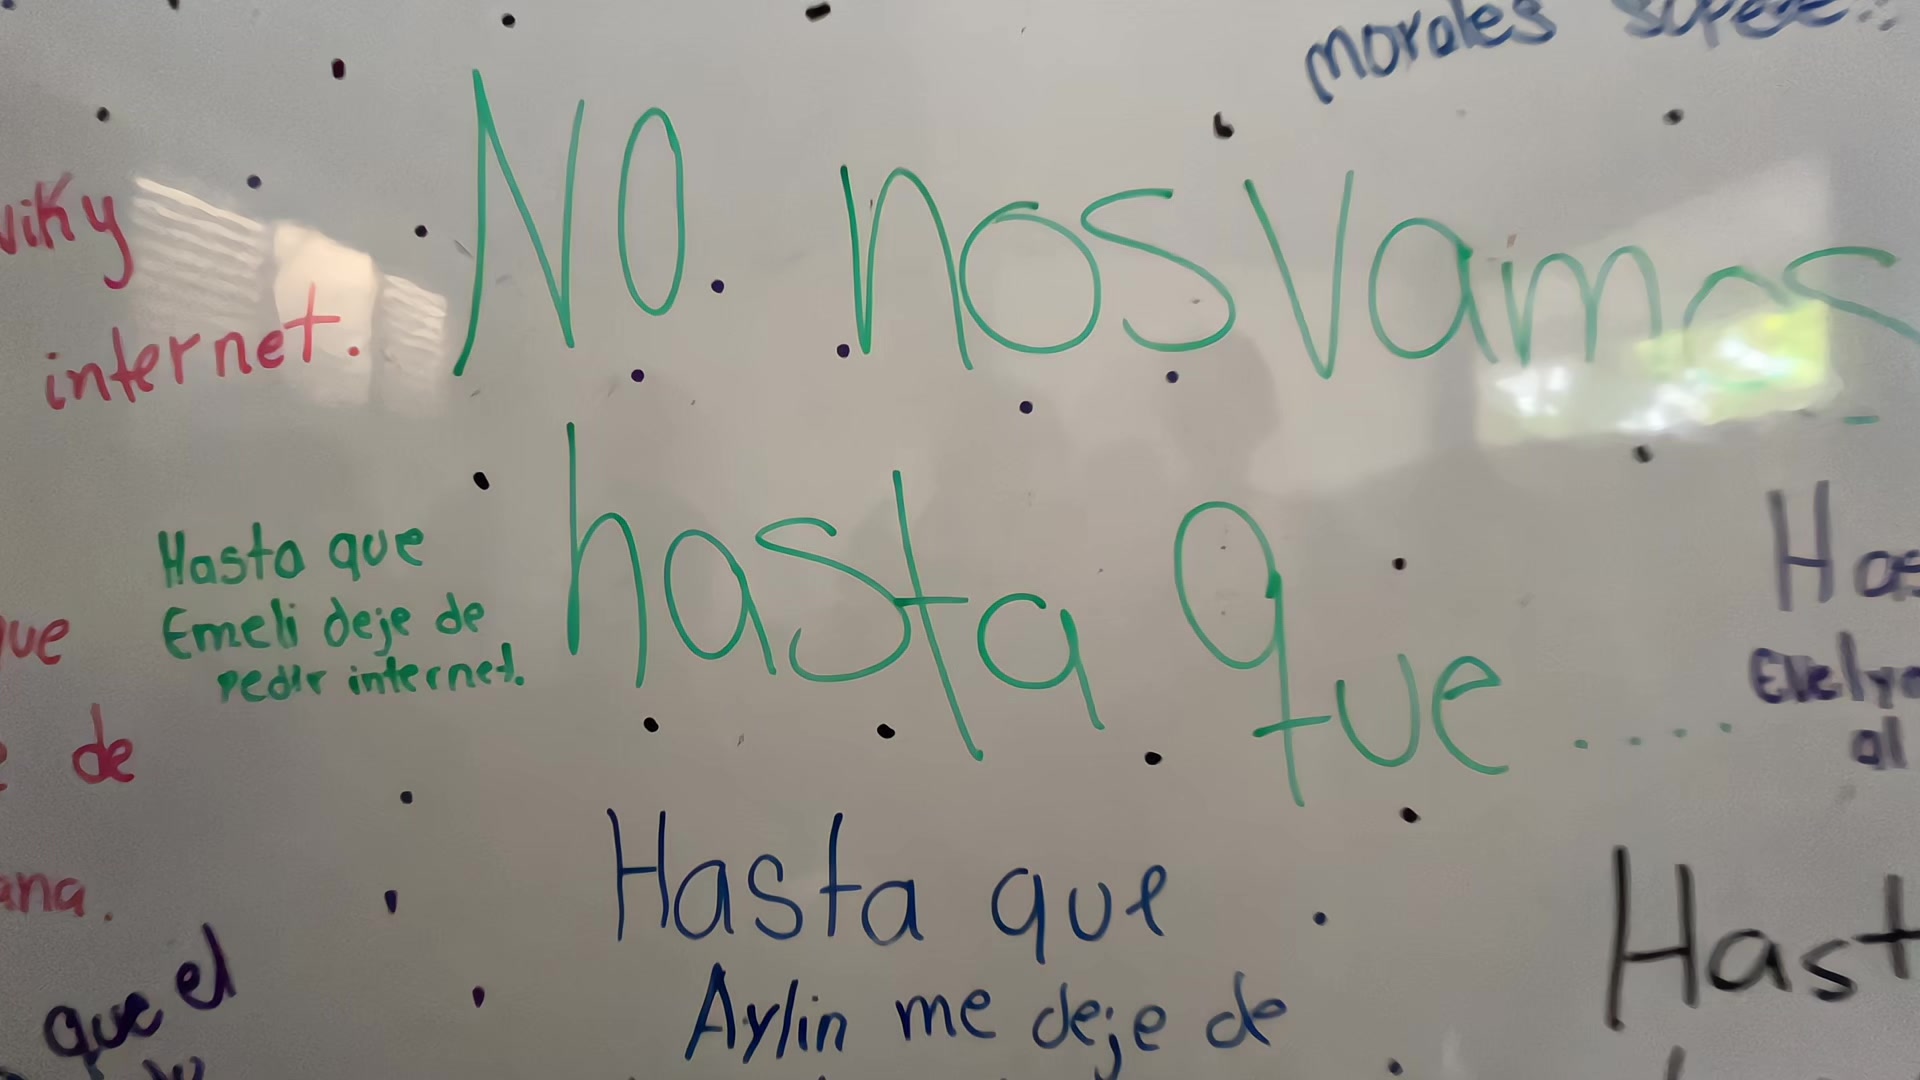 morales supere..
NO. nos vamos
viky
internet.
hasta que .....
Hasta que
Emeli deje de
pedir internet.
que
de
ana.
que el
Hasta que
Aylin me deje de
Has
Evelyn
al
Hast